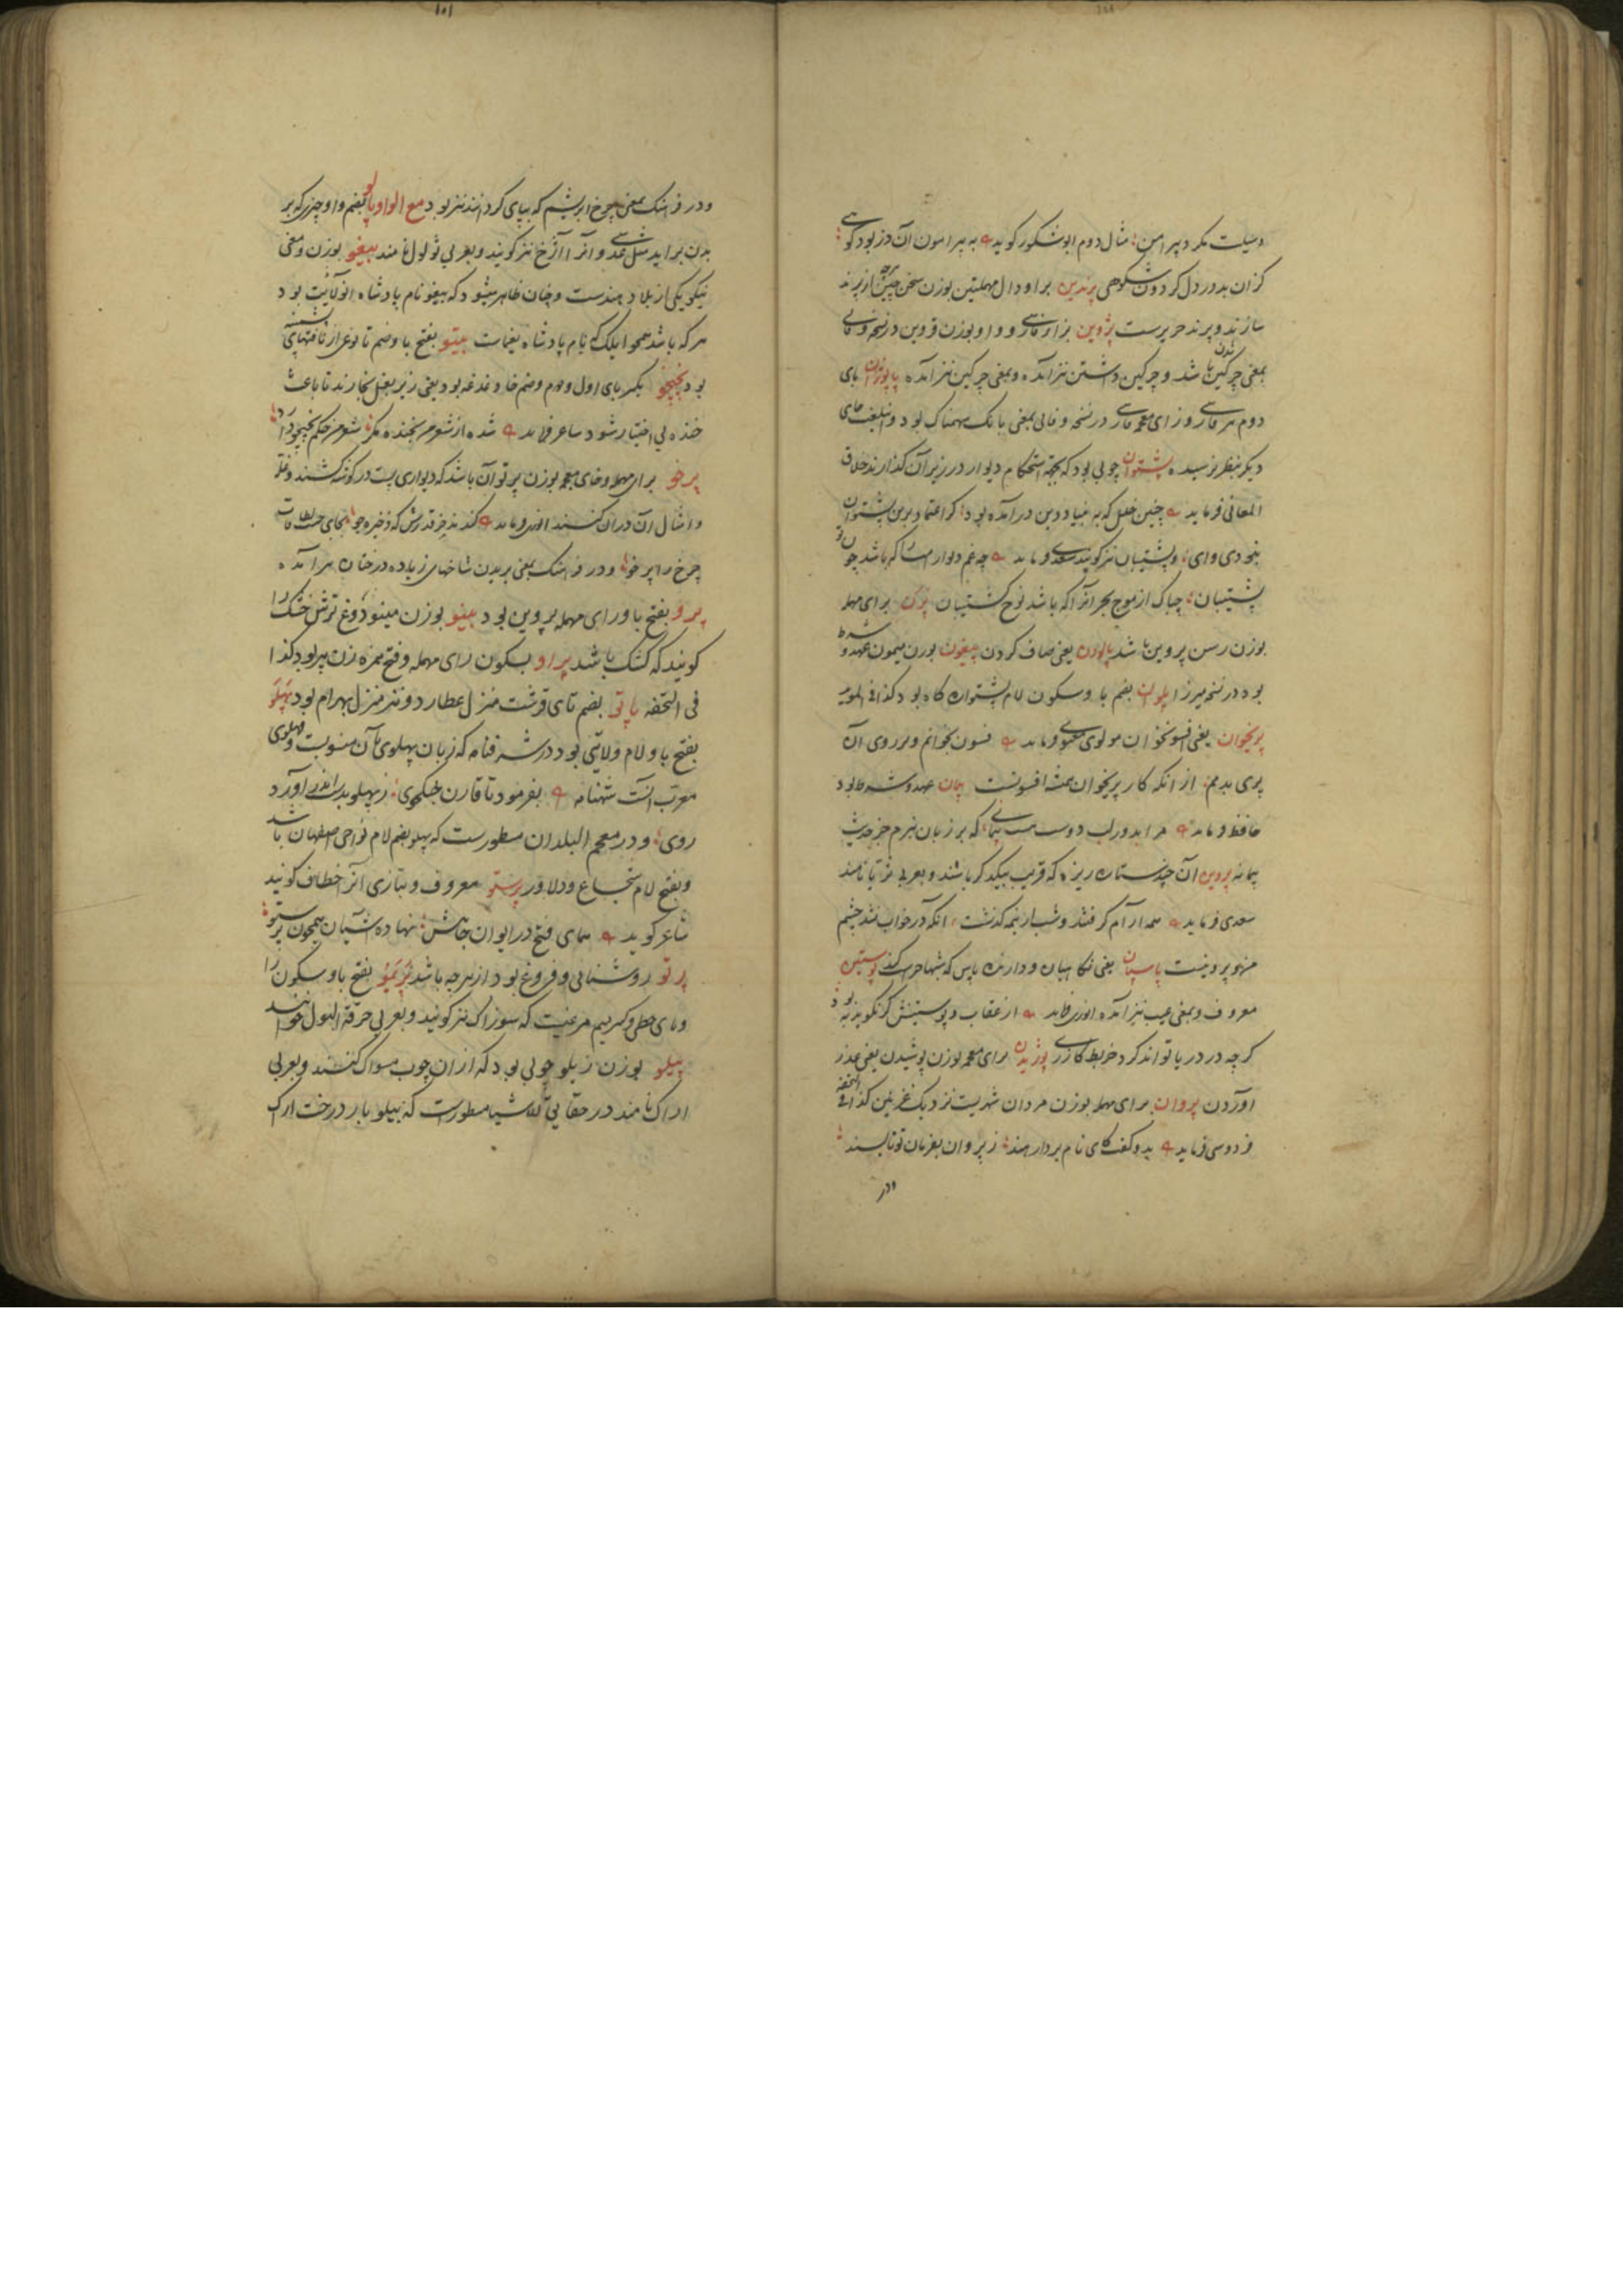 وسیلت مکر د پیرامن مثال دوم ابوشکور کوید به پیرامون آن دز بود کوهی
کزان بد در دل کردون شکوهی پرندین برا و دال مهملتین بوزن سخن چین از پرند
سازند و پرند حریرست پژوین بزای فارسی و واو بوزن قزوین در نسخه وفائی
بمعنی چرکین باشد و چرکین داشتن نیز آمده و بمعنی چرکین شدن نیز آمده پاپوزان بای
دوم هم فارسی و زای معجمه فارسی در نسخه وفائی بمعنی بانک سهمناک بود و این لغت جای
دیکر بنظر نرسیده پشتوان چوبی بود که بجهة استحکام دیوار در زیر آن کذارند خلاق
المعانی فرماید چنین خلل که به بنیاد دین درآمده بود کرا اعتماد برین پشتوان
بخودی وای و پشتیبان نیز کویند سعدی فرماید چه غم دیوار امت را که باشد چون تو
پشتیبان چه باک از موج بحر آنرا که باشد نوح کشتیبان پرن برای مهمله
بوزن رسن پروین باشد پالودن یعنی صاف کردن پیغون بوزن میمون عهد و شرط
بود در نسخه میرزا پلوان بضم با و سکون لام پشتواره کاه بود کذا فی المؤید
پریخوان یعنی افسونخوان مولوی معنوی فرماید فسون بخوانم و بر روی آن
پری بدمم از انکه کار پریخوان همیشه افسونست پیمان عهد و شرط بود
حافظ فرماید مرا بدور لب دوست هست پیمانی که بر زبان نبرم جز حدیث
پیمانه پروین آن چند ستاره ریزه که قریب بیکدکر باشند و بعربی ثریا نامند
سعدی فرماید همه آرام کرفتند و شب از نیمه کذشت انکه در خواب نشد چشم
من و پروینست پاسبان یعنی نکاهبان و دارنده پاس که شبها حراست کند پوستین
معروف و بمعنی عیب نیز آمده انوری فرماید از عقاب و پوستینش کر نکویند به بود
کرچه در دریا تواند کرد خربط کازری پوزیدن برای معجمه بوزن پوشیدن یعنی عذر
آوردن پروان برای مهمله بوزن مردان شهریست نزدیک غزنین کذا فی التحفه
فردوسی فرماید بدو کفت کای نام بردار هند ز پروان بفرمان تو تا بسند
و در
۱۰۱
و در فرهنک بمعنی چرخ ابریشم که بپای کردانند نیز بود مع الواو پالو بضم واو چیزی که بر
بدن براید مثل عدسی و آنرا آژخ نیز کویند و بعربی ثولول نامند پیغو بوزن و معنی
نیکو یکی از بلاد هندست و چنان ظاهر میشود که پیغو نام پادشاه آنولایت بود
هر که باشد همچو ایلک که نام پادشاه یغماست پیتو بفتح با و ضم تا نوعی از بافتهای پشمینه
بود پخپخو بکسر بای اول و دوم و ضم خا دغدغه بود یعنی زیر بغل بخارند تا باعث
خنده بی اختیار شود شاعر فرماید شده از شعر من بخنده مکر شعر من حکم پخپخو دارد
پرخو برای مهمله و خای معجمه بوزن پرتو آن باشد که دیواری پست در کوشه کشند و غله
و امثال آن در آن کنند انوری فرماید کند بذر قدرش که ذخیره جو بجای حسنات
چرخ را پرخو و در فرهنک بمعنی بریدن شاخهای زیاده درختان هم آمده
پرو بفتح با و رای مهمله پروین بود پینو بوزن مینو دوغ ترش خشک را
کویند که کشک باشد پراو بسکون رای مهمله و فتح همزه زن پیر بود کذا
فی التحفه پاتو بضم تای قرشت منزل عطارد و نیز منزل بهرام بود پهلو
بفتح با و لام ولایتی بود در شرفنامه که زبان پهلوی بآن منسوبست و فهلوی
معرب آنست شهنامه بفرمود تا قارن جنکجوی ز پهلو بدر اندر آورد
روی و در معجم البلدان مسطورست که پهلو بضم لام نواحی اصفهان باشد
و بفتح لام شجاع و دلاور پرستو معروف و بتازی آنرا خطاف کویند
شاعر کوید همای فتح در ایوان جاهش نهاده آشیان همچون پرستو
پرتو روشنائی و فروغ بود از هرچه باشد پزمیو بفتح با و سکون را
و یای حطی و کسر میم مرضیست که سوزاک نیز کویند و بعربی حرقة البول خوانند
پیلو بوزن زیلو چوبی بود که از ان چوب مسواک کنند و بعربی
اراک نامند در حقایق الاشیا مسطورست که پیلو بار درخت اراک